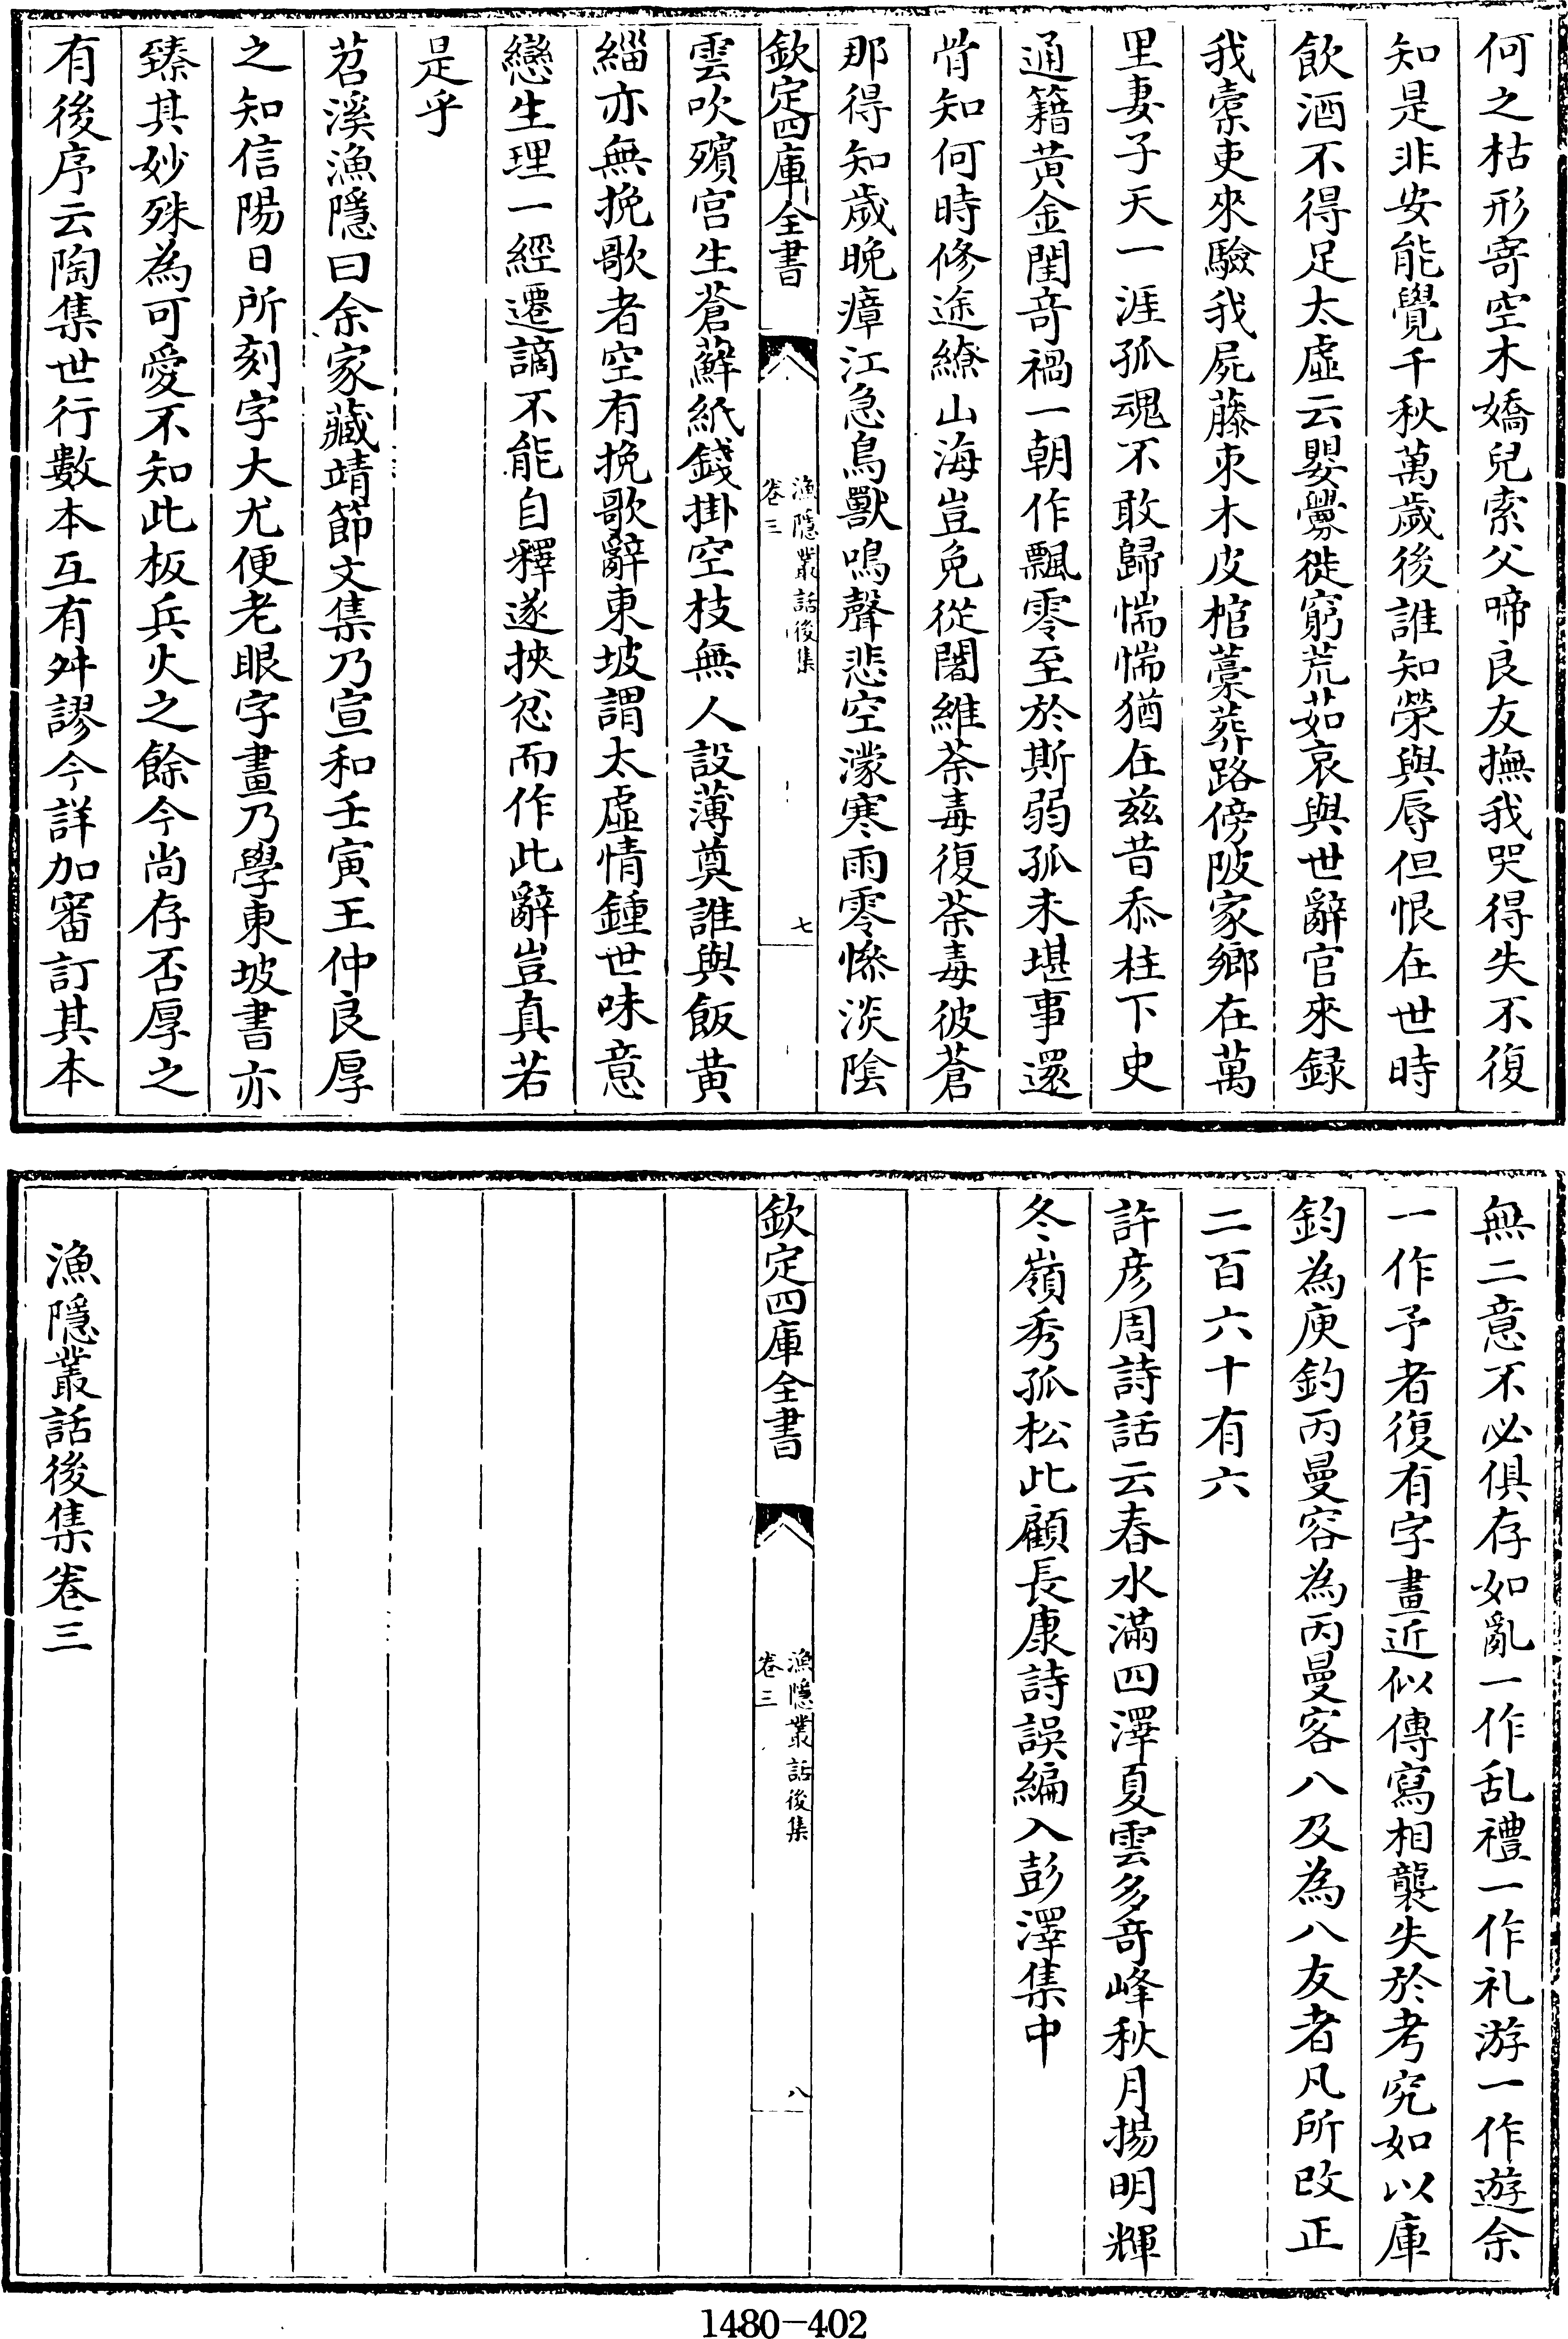 何之枯形寄空木嬌兒索父啼良友撫我哭得失不復
知是非安能覺千秋萬歲後誰知榮與辱但恨在世時
飲酒不得足太虛云嬰釁徙窮荒茹哀與世辭官來録
我橐吏來驗我屍藤束木皮棺藁葬路傍陂家鄉在萬
里妻子天一涯孤魂不敢歸惴惴猶在兹昔忝柱下史
通籍黃金閨竒禍一朝作飄零至於斯弱孤未堪事還
骨知何時修途繚山海豈免從闍維荼毒復荼毒彼蒼
那得知歲晚瘴江急鳥獸鳴聲悲空濛寒雨零慘淡陰
欽定四庫全書
漁隱叢話後集
卷三
七
雲吹殯宫生蒼蘚紙錢掛空枝無人設薄奠誰與飯黄
緇亦無挽歌者空有挽歌辭東坡謂太虛情鍾世味意
戀生理一經遷謫不能自釋遂挾忿而作此辭豈真若
是乎
苕溪漁隱曰余家藏靖節文集乃宣和壬寅王仲良厚
之知信陽日所刻字大尤便老眼字畫乃學東坡書亦
臻其妙殊為可愛不知此板兵火之餘今尚存否厚之
有後序云陶集世行數本互有舛謬今詳加審訂其本
無二意不必俱存如亂一作乱禮一作礼游一作遊余
一作予者復有字畫近似傳寫相襲失於考究如以庫
鈞為庾鈞丙曼容為丙曼客八及為八友者凡所改正
二百六十有六
許彦周詩話云春水滿四澤夏雲多竒峰秋月揚明輝
冬嶺秀孤松此顧長康詩誤編入彭澤集中
欽定四庫全書
漁隱叢話後集
卷三
八
漁隱叢話後集卷三
1480-402